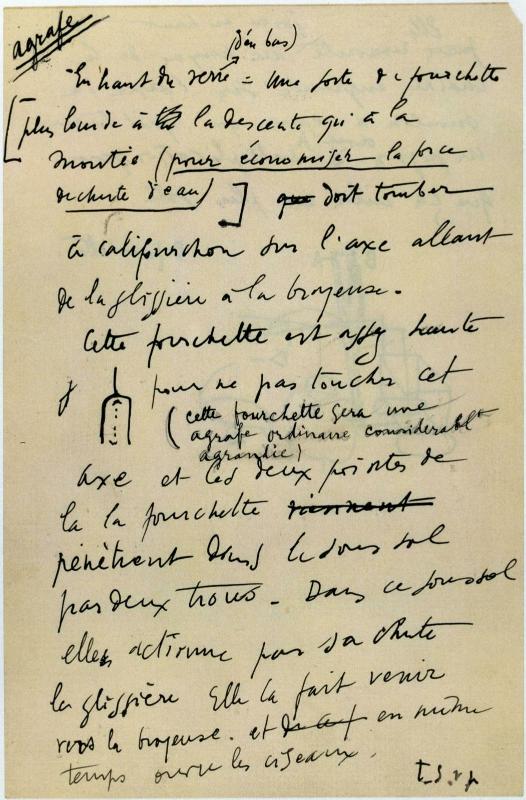 agrafe
(d'en bas)
En haut du verre = une sorte de fourchette
[plus lourde à la descente qu'à la
montée (pour économiser la force
de chute d'eau)] que doit tomber
à califourchon sur l'axe allant
de la glissière à la broyeuse.
Cette fourchette est assez haute
pour ne pas toucher cet
(cette fourchette sera une
agrafe ordinaire considerablt
agrandie)
axe et les deux pointes de
la la fourchette viennent
pénètrent dans le sous sol
par deux trous. Dans ce sous sol
elle actionne par sa chute
la glissière Elle la fait venir
vers la broyeuse. et en même
temps ouvre les ciseaux.
T.S.v.p